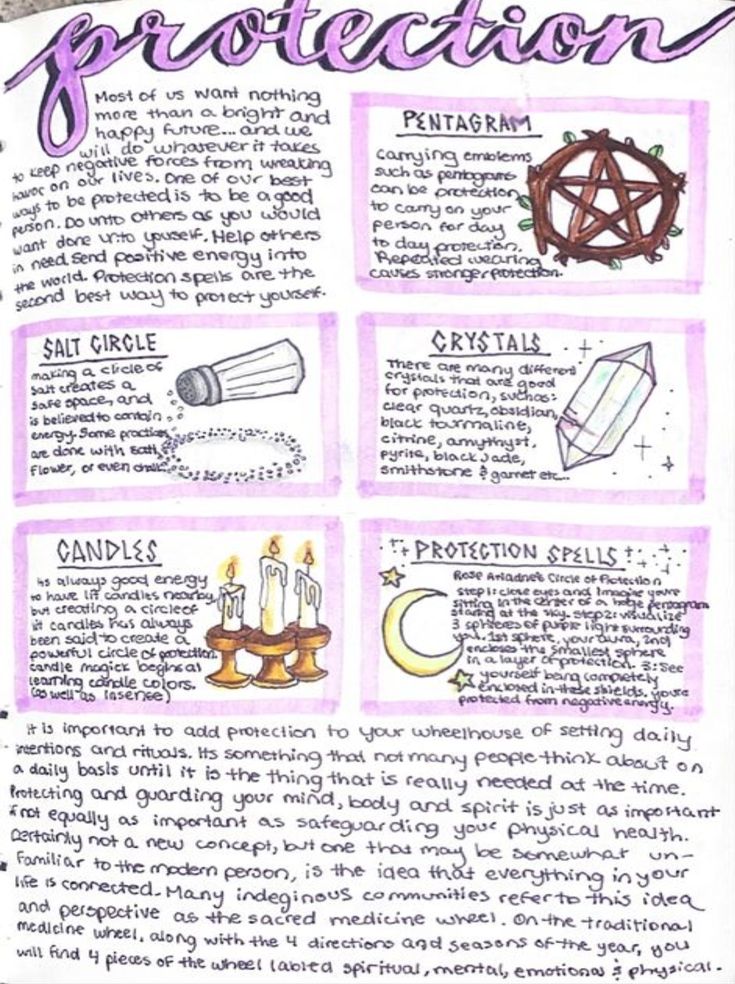 protection
Most of us want nothing
more than a bright and
happy future... and we
will do whatever it takes
to keep negative forces from wreaking
havoc on our lives. One of our best
ways to be protected is to be a good
person. Do unto others as you would
want done unto youself. Help others
in need. Send positive energy into
the world. Protection spells are the
second best way to protect yourself.
PENTAGRAM
carrying emblems
such as pentagrams
can be protection
to carry on your
person for day
to day protection.
Repeated wearing
causes stronger protection.
SALT CIRCLE
making a clicle of
salt creates a
safe space, and
is believed to contain
energy. Some practices
are done with salt,
flower, or even chalk.
CRYSTALS
There are many different
crystals that are good
for protection, suchas:
clear quartz, obsidian,
black tourmaline,
citrine, amythyst,
pyrite, black jade,
smithstone & garnet etc...
CANDLES
its always good energy
to have lit candles nearby,
but creating a circle of
lit candles has always
been said to create a
powerful circle of protection.
candle magick begins at
learning candle colors.
(as well as insense)
PROTECTION SPELLS
Rose Ariadne's Circle of Protection
step 1: close eyes and imagine you're
sitting in the center of a huge pentagram
staring at the sky. Step 2: visualize
3 spheres of purple light surrounding
you. 1st sphere, your aura, 2nd
encloses the smallest sphere
in a layer of protection. 3: See
yourself being completely
enclosed in these shields. you're
protected from negative energy.
it is important to add protection to your wheelhouse of setting daily
intentions and rituals. Its something that not many people think about on
a daily basis until it is the thing that is really needed at the time.
Protecting and guarding your mind, body and spirit is just as important
if not equally as important as safeguarding your physical health.
Certainly not a new concept, but one that may be somewhat un-
familiar to the modern person, is the idea that everything in your
life is connected. Many indeginous communities refer to this idea
and perspective as the sacred medicine wheel. On the traditional
medicine wheel, along with the 4 directions and seasons of the year, you
will find 4 pieces of the wheel labled spiritual, mental, emotional & physical.